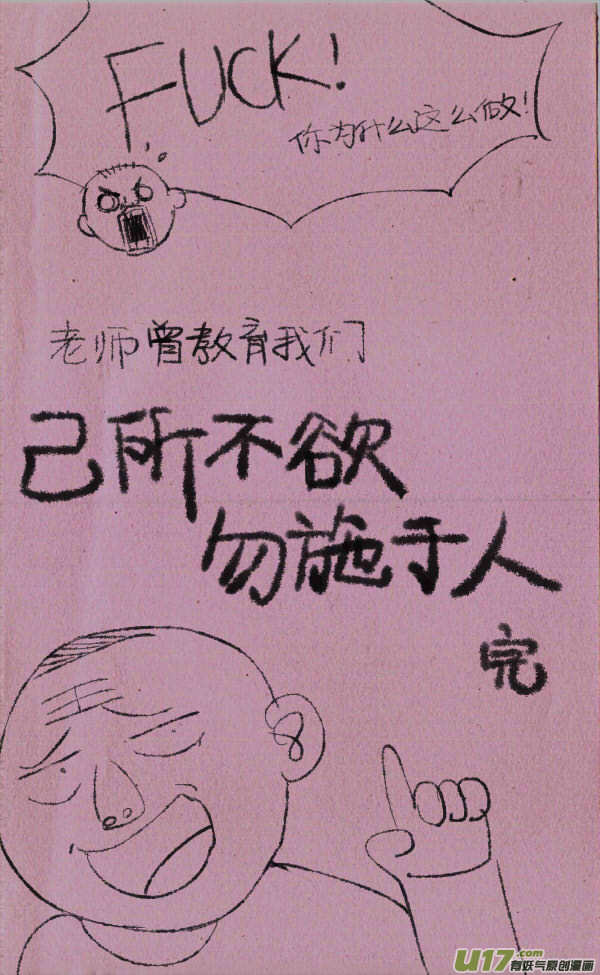 FUCK!
你为什么这么做!
老师曾教育我们
己所不欲
勿施于人
完
U17.com
有妖气原创漫画